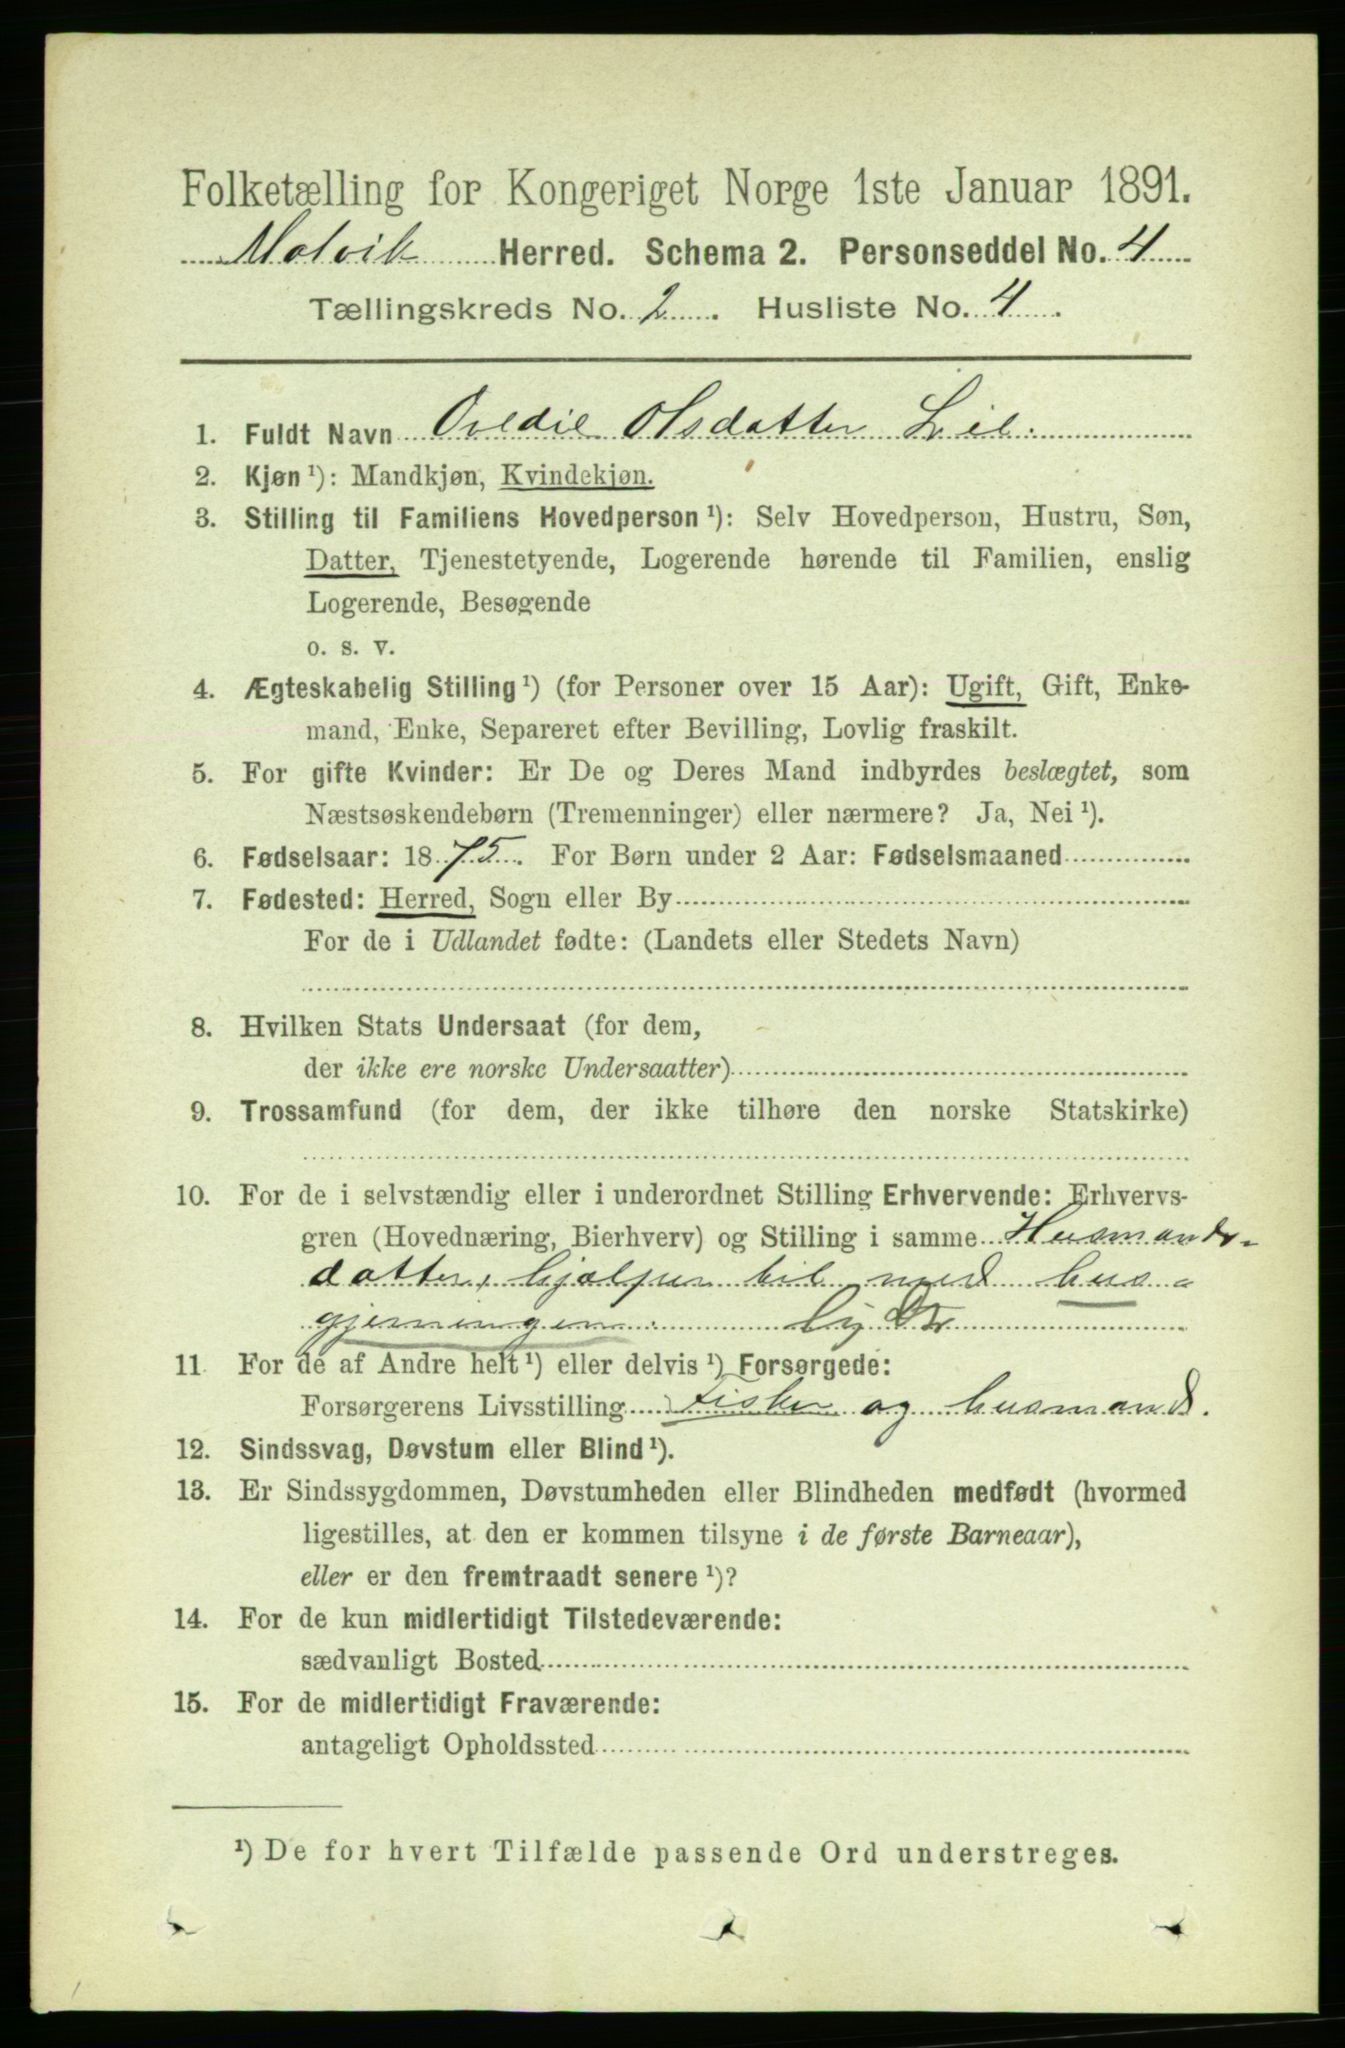 Folketælling for Kongeriget Norge 1ste Januar 1891.
Malvik Herred. Schema 2. Personseddel No. 4
Tællingskreds No. 2. Husliste No. 4.
1. Fuldt Navn Olsdatter
2. Kjøn ¹): Mandkjøn, Kvindekjøn.
3. Stilling til Familiens Hovedperson ¹): Selv Hovedperson, Hustru, Søn,
Datter, Tjenestetyende, Logerende hørende til Familien, enslig
Logerende, Besøgende
o. s. v.
4. Ægteskabelig Stilling ¹) (for Personer over 15 Aar): Ugift, Gift, Enke-
mand, Enke, Separeret efter Bevilling, Lovlig fraskilt.
5. For gifte Kvinder: Er De og Deres Mand indbyrdes beslægtet, som
Næstsøskendebørn (Tremenninger) eller nærmere? Ja, Nei ¹).
6. Fødselsaar: 1875. For Børn under 2 Aar: Fødselsmaaned
7. Fødested: Herred, Sogn eller By
For de i Udlandet fødte: (Landets eller Stedets Navn)
8. Hvilken Stats Undersaat (for dem,
der ikke ere norske Undersaatter)
9. Trossamfund (for dem, der ikke tilhøre den norske Statskirke)
10. For de i selvstændig eller i underordnet Stilling Erhvervende: Erhvervs-
gren (Hovednæring, Bierhverv) og Stilling i samme Husmands-
datter, hjælper til med hus-
gjerningen.
11 For de af Andre helt ¹) eller delvis ¹) Forsørgede:
Forsørgerens Livsstilling Fisker og husmand.
12. Sindssvag, Døvstum eller Blind ¹).
13. Er Sindssygdommen, Døvstumheden eller Blindheden medfødt (hvormed
ligestilles, at den er kommen tilsyne i de første Barneaar),
eller er den fremtraadt senere ¹)?
14. For de kun midlertidigt Tilstedeværende:
sædvanligt Bosted
15. For de midlertidigt Fraværende:
antageligt Opholdssted
¹) De for hvert Tilfælde passende Ord understreges.